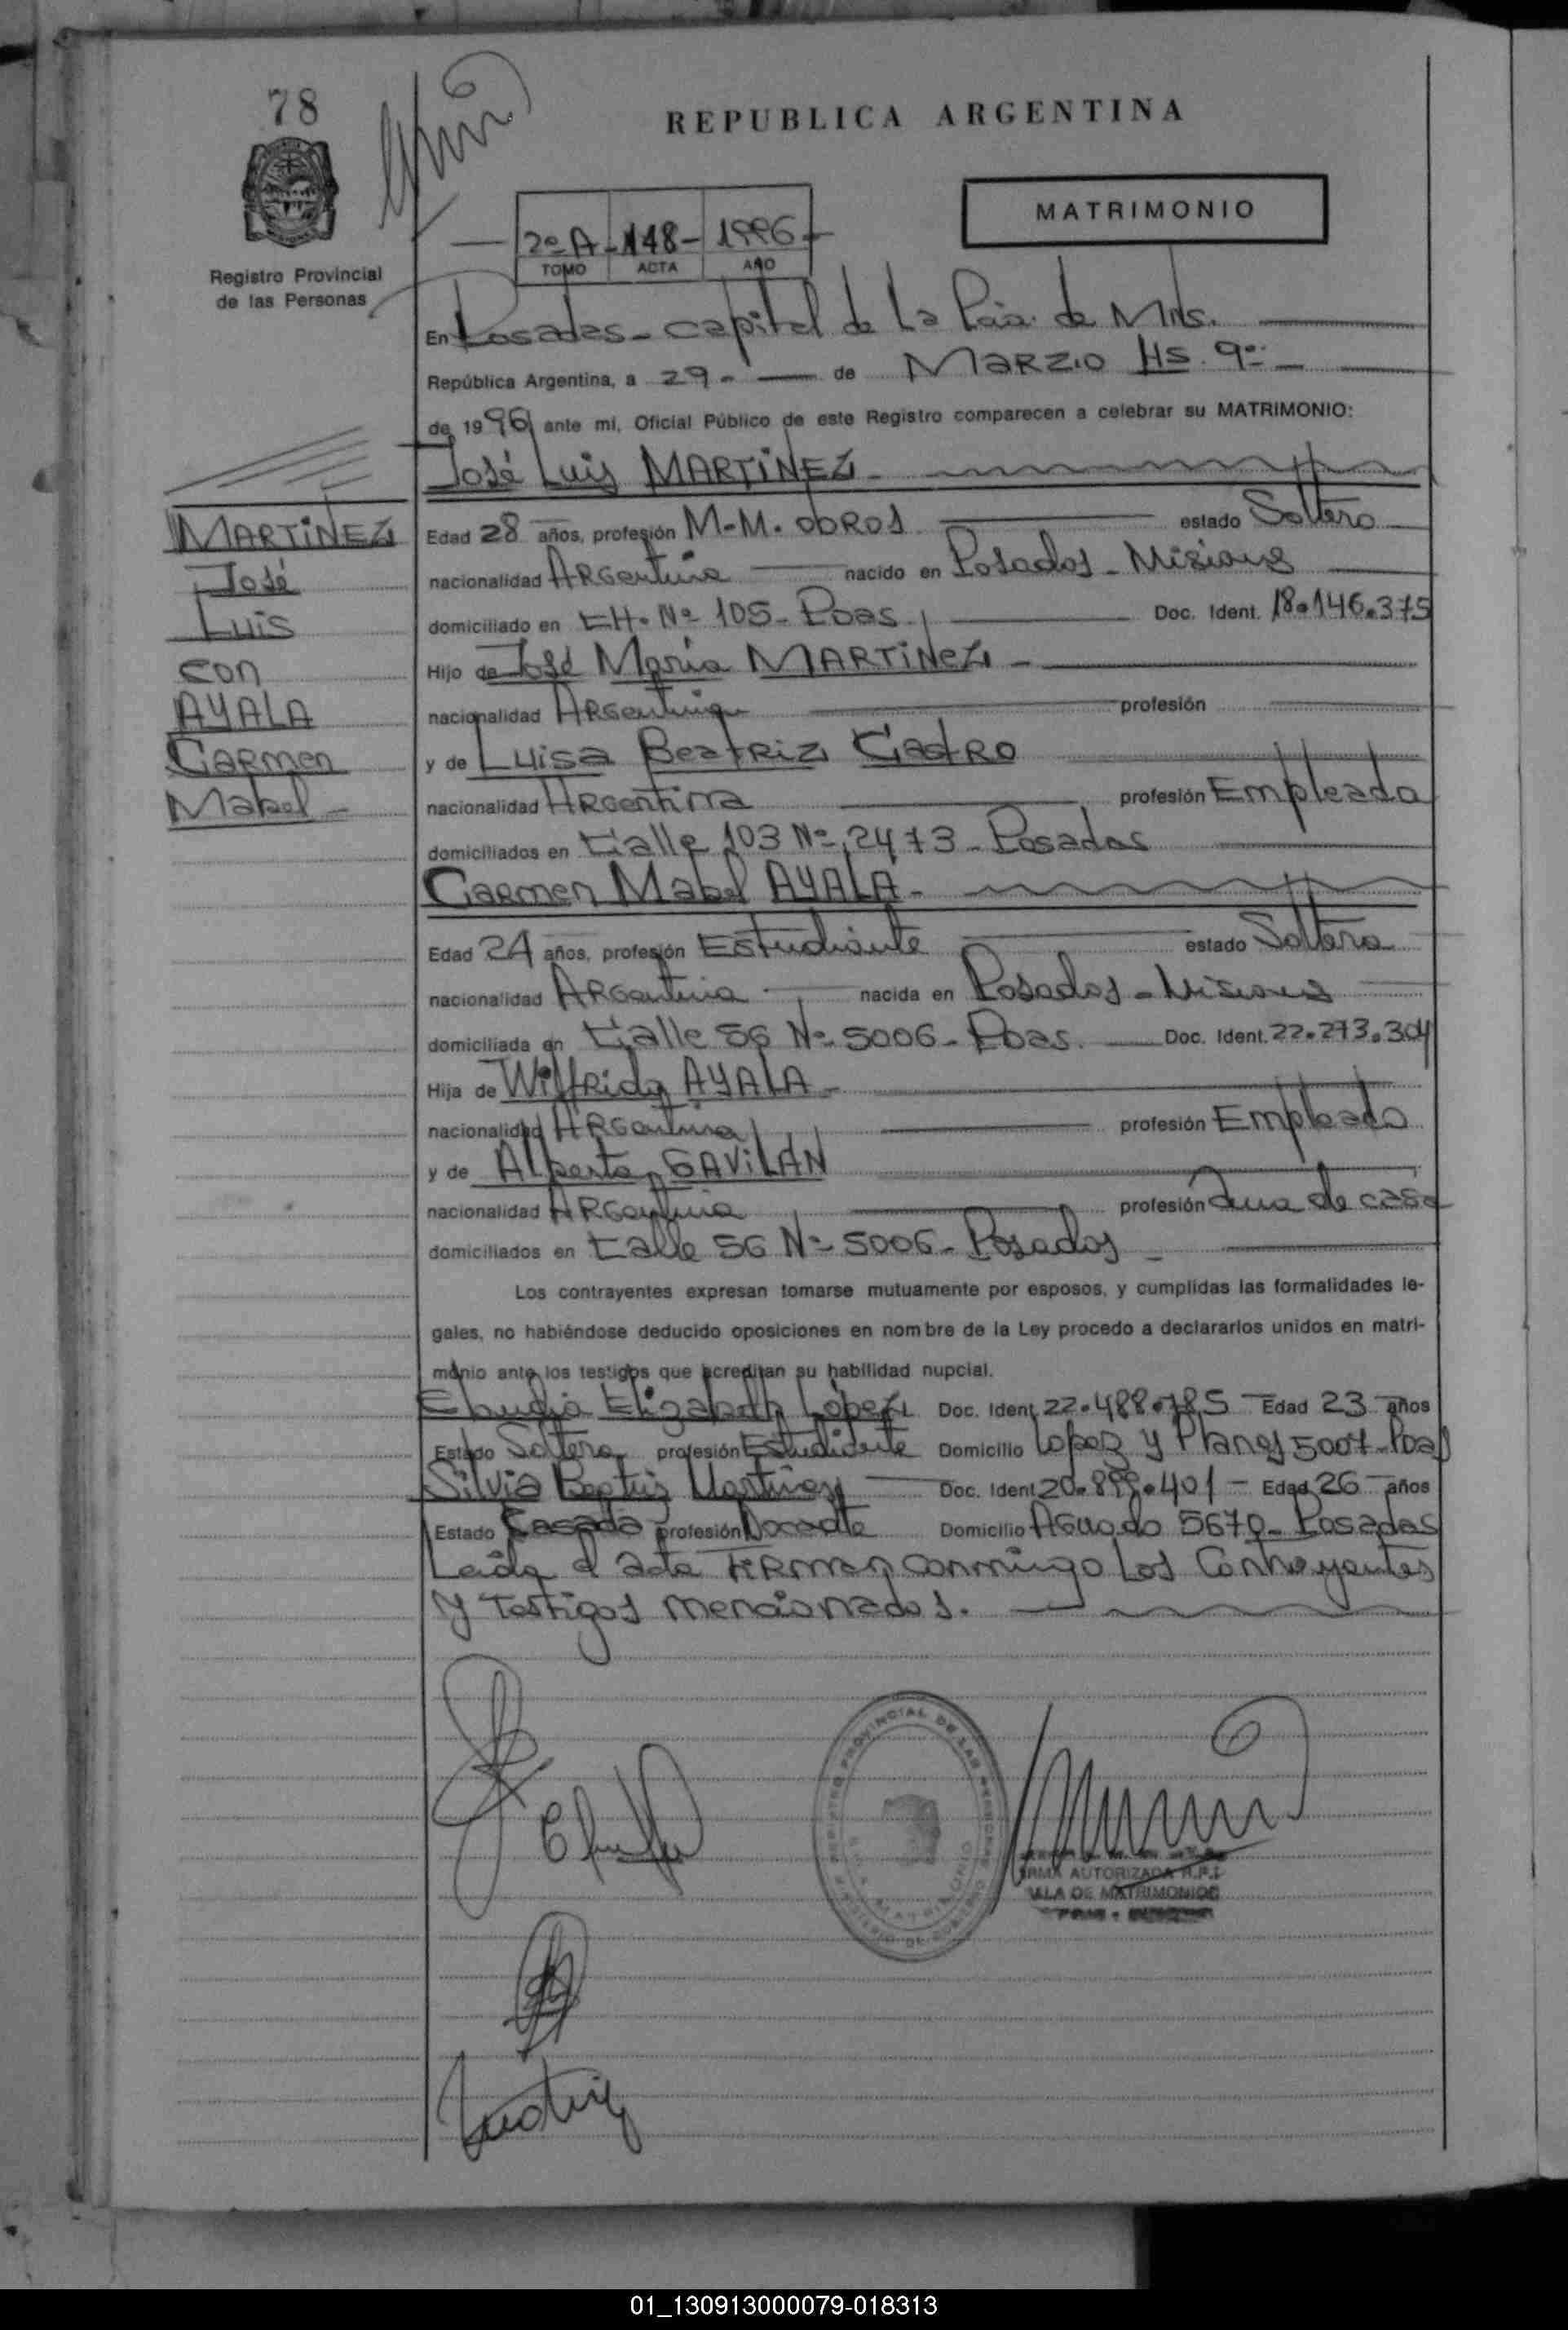 78
REPUBLICA ARGENTINA
MATRIMONIO
2º A - 148 - 1996
TOMO ACTA AÑO
Registro Provincial
de las Personas
En Posadas - capital de La Pcia. de Mns.
República Argentina, a 29 - de MARZO HS. 9
de 1996 ante mí, Oficial Público de este Registro comparecen a celebrar su MATRIMONIO:
José Luis MARTINEZ -
MARTINEZ
José
Luis
con
AYALA
Carmen
Mabel -
Edad 28 años, profesión M-M. obros estado Soltero
nacionalidad Argentina nacido en Posadas - Misiones
domiciliado en CH. Nº 105 - Pdas. Doc. Ident. 18.146.375
Hijo de José María MARTINEZ -
nacionalidad Argentina profesión
y de Luisa Beatriz Castro
nacionalidad Argentina profesión Empleada
domiciliados en Calle 103 Nº 2473 - Posadas
Carmen Mabel AYALA -
Edad 24 años, profesión Estudiante estado Soltera
nacionalidad Argentina nacida en Posadas - Misiones
domiciliada en Calle 56 Nº 5006 - Pdas. Doc. Ident. 22.273.304
Hija de Wilfrido AYALA -
nacionalidad Argentina profesión Empleado
y de Alberta GAVILÁN
nacionalidad Argentina profesión Ama de casa
domiciliados en Calle 56 Nº 5006 - Posadas -
Los contrayentes expresan tomarse mutuamente por esposos, y cumplidas las formalidades le-
gales, no habiéndose deducido oposiciones en nombre de la Ley procedo a declararlos unidos en matri-
monio ante los testigos que acreditan su habilidad nupcial.
Claudia Elizabeth López Doc. Ident. 22.488.785 Edad 23 años
Estado Soltera profesión Estudiante Domicilio Lopez y Planes 5007 - Pdas
Silvia Beatriz Martinez Doc. Ident. 20.899.401 - Edad 26 años
Estado Casada profesión Docente Domicilio Aguado 5670 - Posadas
Leída el acta firman conmigo Los Contrayentes
y Testigos mencionados.
REGISTRO PROVINCIAL DE LAS PERSONAS
FIRMA AUTORIZADA R.P.P.
SALA DE MATRIMONIOS
01_130913000079-018313